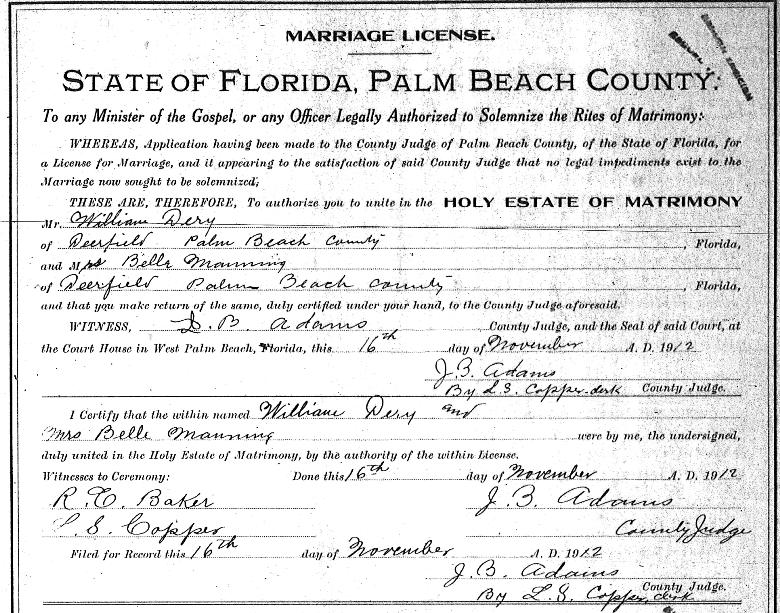 MARRIAGE LICENSE.
STATE OF FLORIDA, PALM BEACH COUNTY.
To any Minister of the Gospel, or any Officer Legally Authorized to Solemnize the Rites of Matrimony:
WHEREAS, Application having been made to the County Judge of Palm Beach County, of the State of Florida, for
a License for Marriage, and it appearing to the satisfaction of said County Judge that no legal impediments exist to the
Marriage now sought to be solemnized;
THESE ARE, THEREFORE, To authorize you to unite in the HOLY ESTATE OF MATRIMONY
Mr. William Dery
of Deerfield Palm Beach County, Florida,
and Mrs Belle Manning
of Deerfield Palm Beach County, Florida,
and that you make return of the same, duly certified under your hand, to the County Judge aforesaid.
WITNESS, J. B. Adams County Judge, and the Seal of said Court, at
the Court House in West Palm Beach, Florida, this 16th day of November A. D. 1912
J. B. Adams
By L. S. Copper clerk County Judge.
I Certify that the within named William Dery and
Mrs Belle Manning were by me, the undersigned,
duly united in the Holy Estate of Matrimony, by the authority of the within License.
Witnesses to Ceremony: Done this 16th day of November A. D. 1912
R. E. Baker J. B. Adams
L. S. Copper County Judge
Filed for Record this 16th day of November A. D. 1912
J. B. Adams
County Judge.
By L. S. Copper, clerk